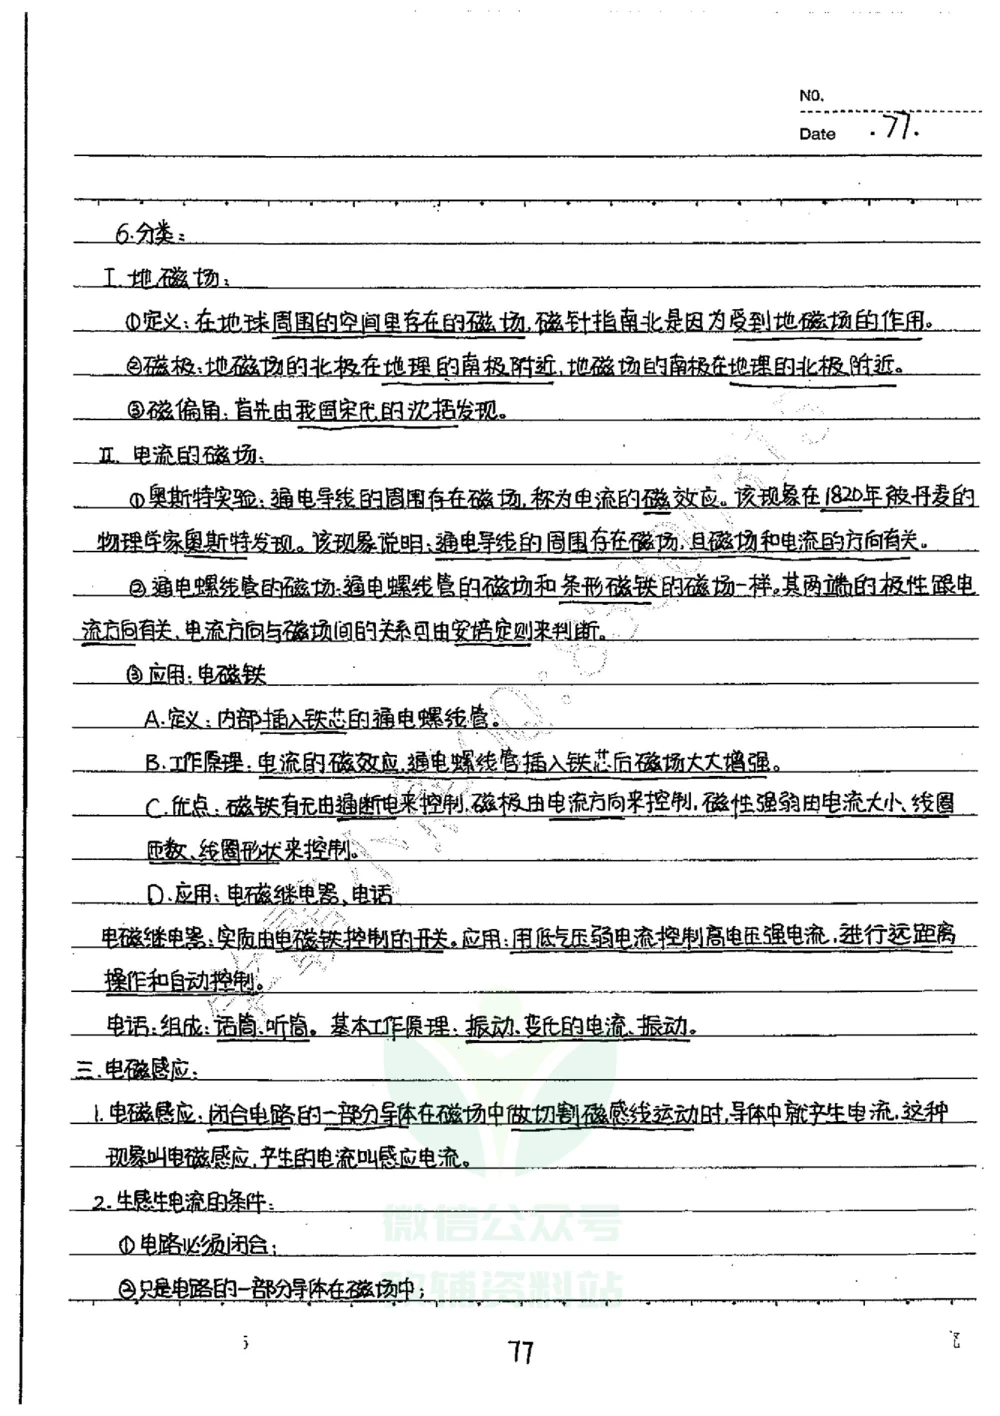 NO.
Date .77.
6.分类:
I.地磁场:
①定义:在地球周围的空间里存在的磁场,磁针指南北是因为受到地磁场的作用。
②磁极:地磁场的北极在地理的南极附近,地磁场的南极在地理的北极附近。
③磁偏角:首先由我国宋代的沈括发现。
II.电流的磁场:
①奥斯特实验:通电导线的周围存在磁场,称为电流的磁效应。该现象在1820年被丹麦的
物理学家奥斯特发现。该现象说明:通电导线的周围存在磁场,且磁场和电流的方向有关。
②通电螺线管的磁场:通电螺线管的磁场和条形磁铁的磁场一样。其两端的极性跟电
流方向有关,电流方向与磁场间的关系可由安培定则来判断。
③应用:电磁铁
A.定义:内部插入铁芯的通电螺线管。
B.工作原理:电流的磁效应,通电螺线管插入铁芯后磁场大大增强。
C.优点:磁铁有无由通断电来控制,磁极由电流方向来控制,磁性强弱由电流大小、线圈
匝数、线圈形状来控制。
D.应用:电磁继电器、电话
电磁继电器:实质由电磁铁控制的开关。应用:用低气压弱电流控制高电压强电流,进行远距离
操作和自动控制。
电话:组成:话筒、听筒。基本工作原理:振动、变化的电流、振动。
三.电磁感应:
1.电磁感应:闭合电路的一部分导体在磁场中做切割磁感线运动时,导体中就产生电流,这种
现象叫电磁感应,产生的电流叫感应电流。
2.生感生电流的条件:
①电路必须闭合;
②只是电路的一部分导体在磁场中;
微信公众号
教辅资料站
77